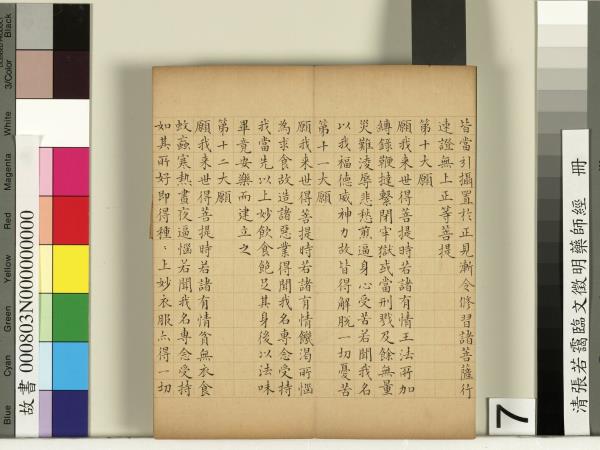 皆當引攝置於正見漸令修習諸菩薩行
速證無上正等菩提
第十大願
願我來世得菩提時若諸有情王法所加
縛錄鞭撻繫閉牢獄或當刑戮及餘無量
災難淩辱悲愁煎逼身心受苦若聞我名
以我福德威神力故皆得解脫一切憂苦
第十一大願
願我來世得菩提時若諸有情饑渴所惱
為求食故造諸惡業得聞我名專念受持
我當先以上妙飲食飽足其身後以法味
畢竟安樂而建立之
第十二大願
願我來世得菩提時若諸有情貧無衣食
蚊蝱寒熱晝夜逼惱若聞我名專念受持
如其所好即得種〻上妙衣服亦得一切
清張若靄臨文徵明藥師經 冊
7
故書 000803N000000000
Black
3/Color
White
Magenta
Red
Yellow
Green
Cyan
Blue